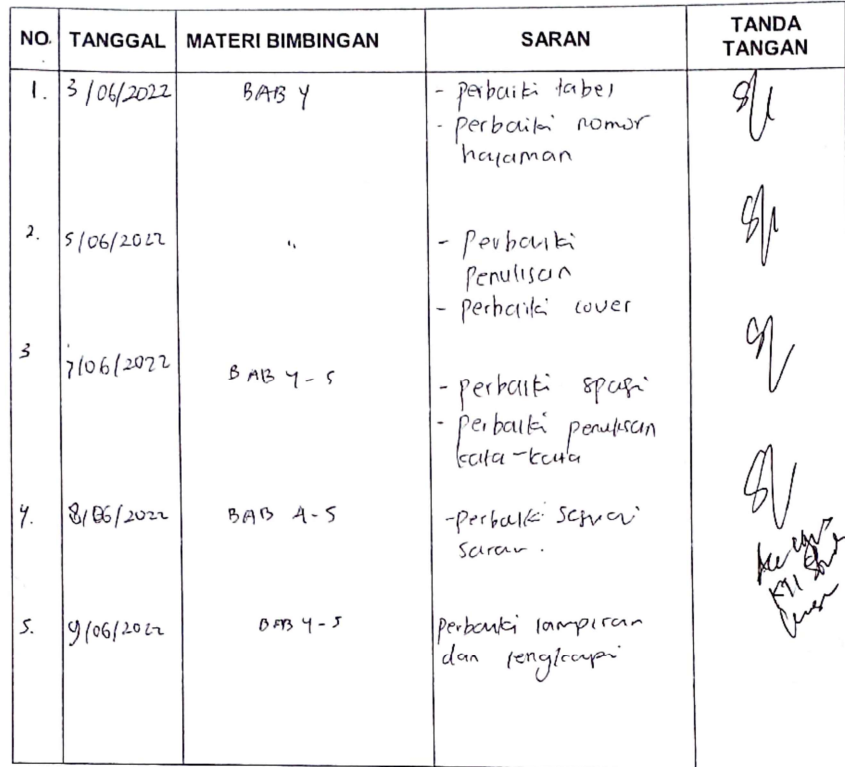 NO. TANGGAL MATERI BIMBINGAN SARAN TANDA TANGAN
1. 3/06/2022 BAB 4 - perbaiki tabel
- perbaiki nomor
halaman
2. 5/06/2022 " - Perbaiki
penulisan
- perbaiki cover
3 7/06/2022 BAB 4-5 - perbaiki spasi
- perbaiki penulisan
kata-kata
4. 8/06/2022 BAB 4-5 - perbaiki sesuai
saran.
KTI
5. 9/06/2022 BAB 4-5 perbaiki lampiran
dan lengkapi